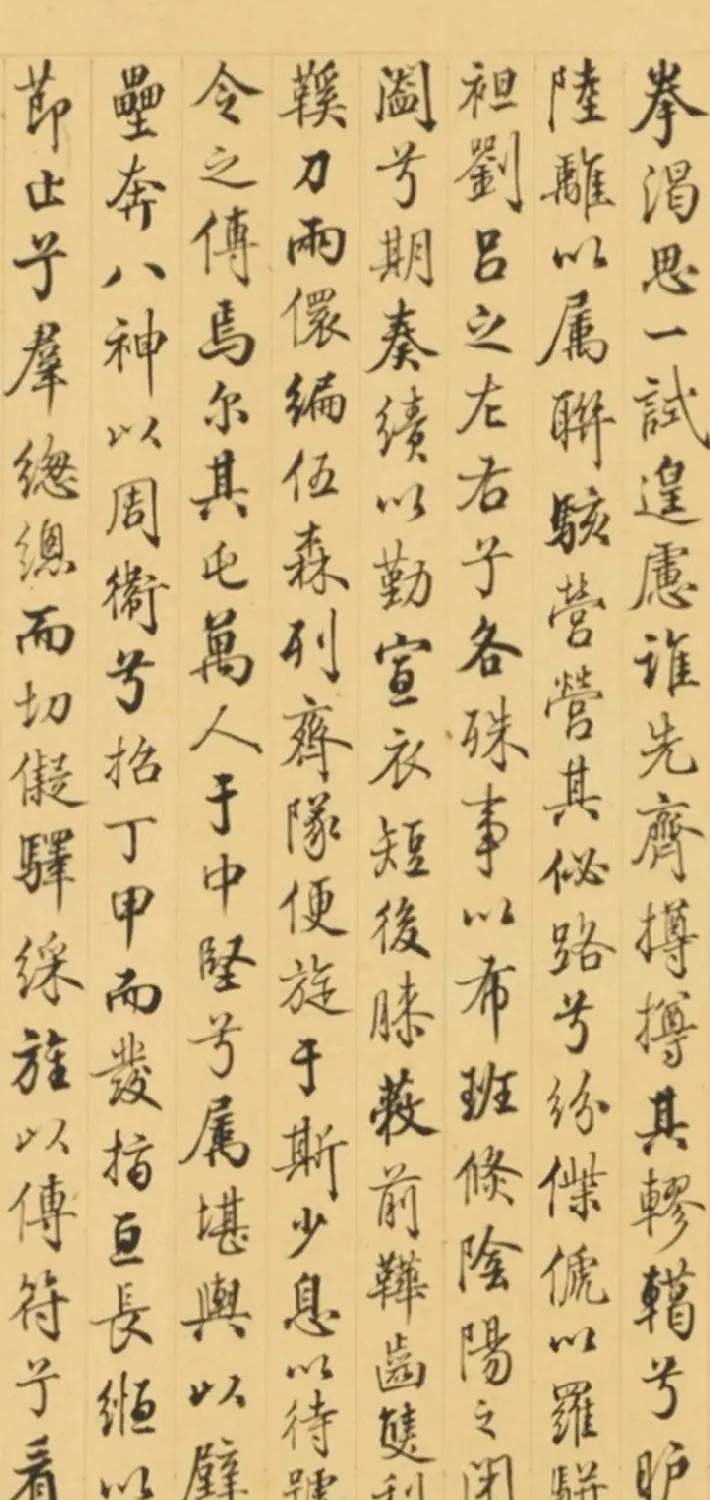 拳渴思一試遑慮誰先齊撙撙其轇轕兮
陸離以属聯駭營營其佖路兮紛傑俿以羅駢
袒劉呂之左右兮各殊事以布班倏陰陽之閉
闔兮期奏績以勤宣衣短後膝蔽前鞾齒雙利
鞵刀兩儇編伍森列齊隊便旋于斯少息以待號
令之傳焉尔其屯萬人于中堅兮属堪輿以壁
壘奔八神以周衛兮招丁甲而發指亘長縆以
節止兮羣總總而切儗驛綵旌以傳符兮看